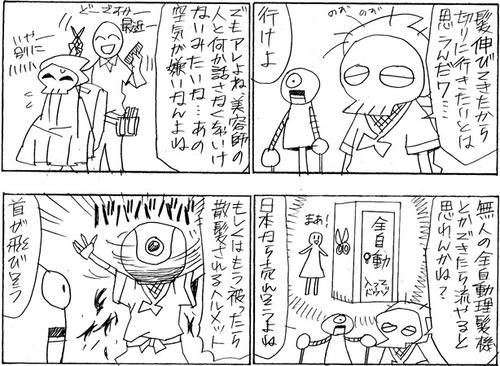 髪伸びてきたから
切りに行きたいとは
思うんだ
のび
のび
行けよ
でもアレよね、美容師の
人と何か話さなくちゃいけ
ないみたいな…あの
空気が嫌いなんよね
最近
いやー
別に
ハハハ
無人の全自動理髪機
とかできたら流行ると
思わんかね?
まぁ!
全自動
日本なら売れそうよね
もしくはもう被ったら
散髪されるヘルメット
首が飛びそう